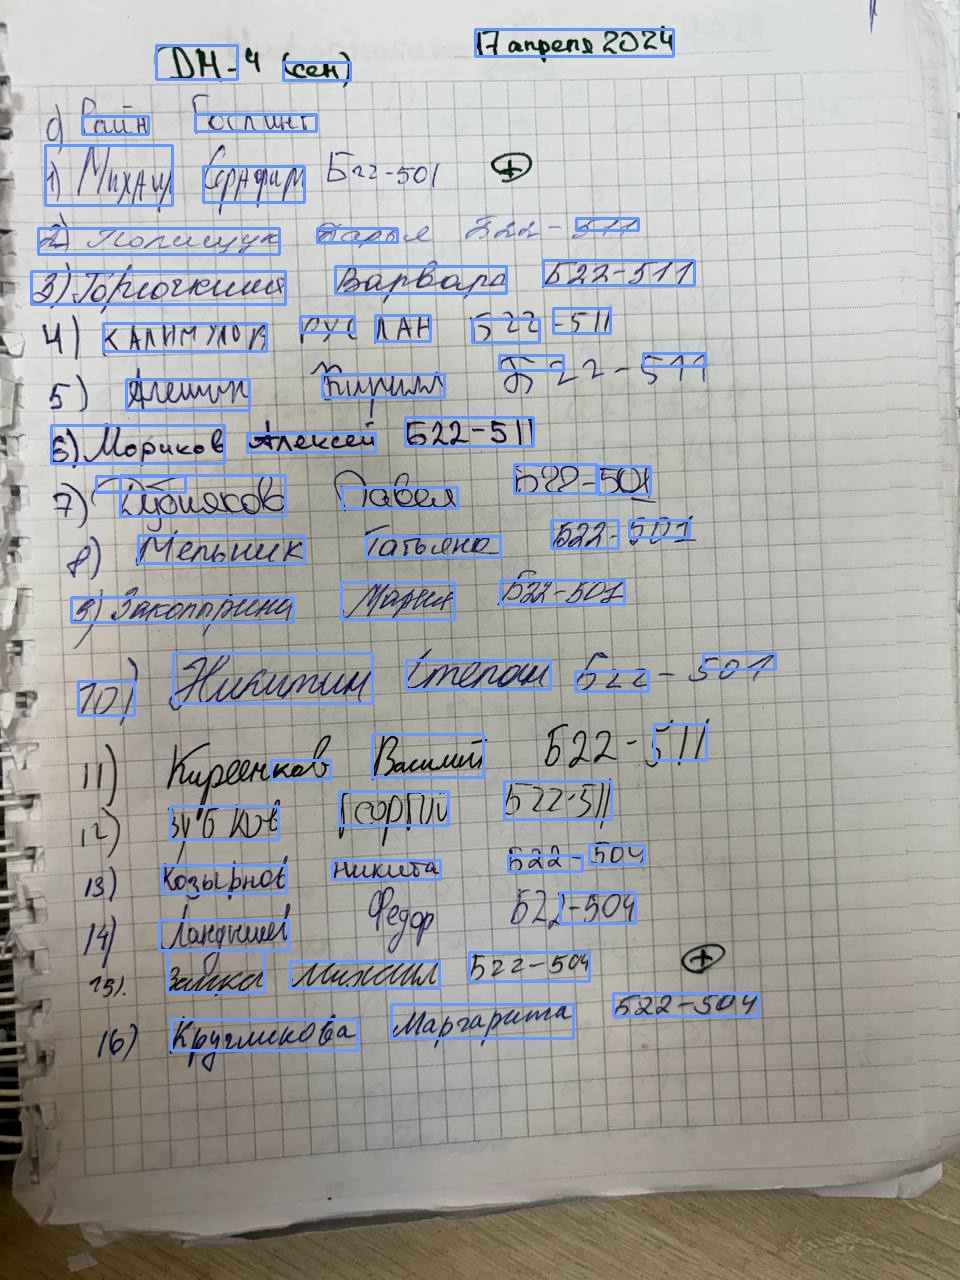 ДМ-4 (сен) 17 апреля 2024
0) Райн Гослинг
1) Михаил Серафим Б22-501 +
2) Полищук Дарья Б22-511
3) Горючкина Варвара Б22-511
4) КАЛИМУЛОВ РУСЛАН Б22-511
5) Алешин Кирилл Б22-511
6) Мориков Алексей Б22-511
7) Дубняков Павел Б22-501
8) Мельник Татьяна Б22-501
9) Закопырина Мария Б22-501
10) Никитин Степан Б22-501
11) Киреенков Василий Б22-511
12) Зубков Георгий Б22-511
13) Козырнов Никита Б22-504
14) Ландышев Федор Б22-504
15). Заика Михаил Б22-504 +
16) Кругликова Маргарита Б22-504